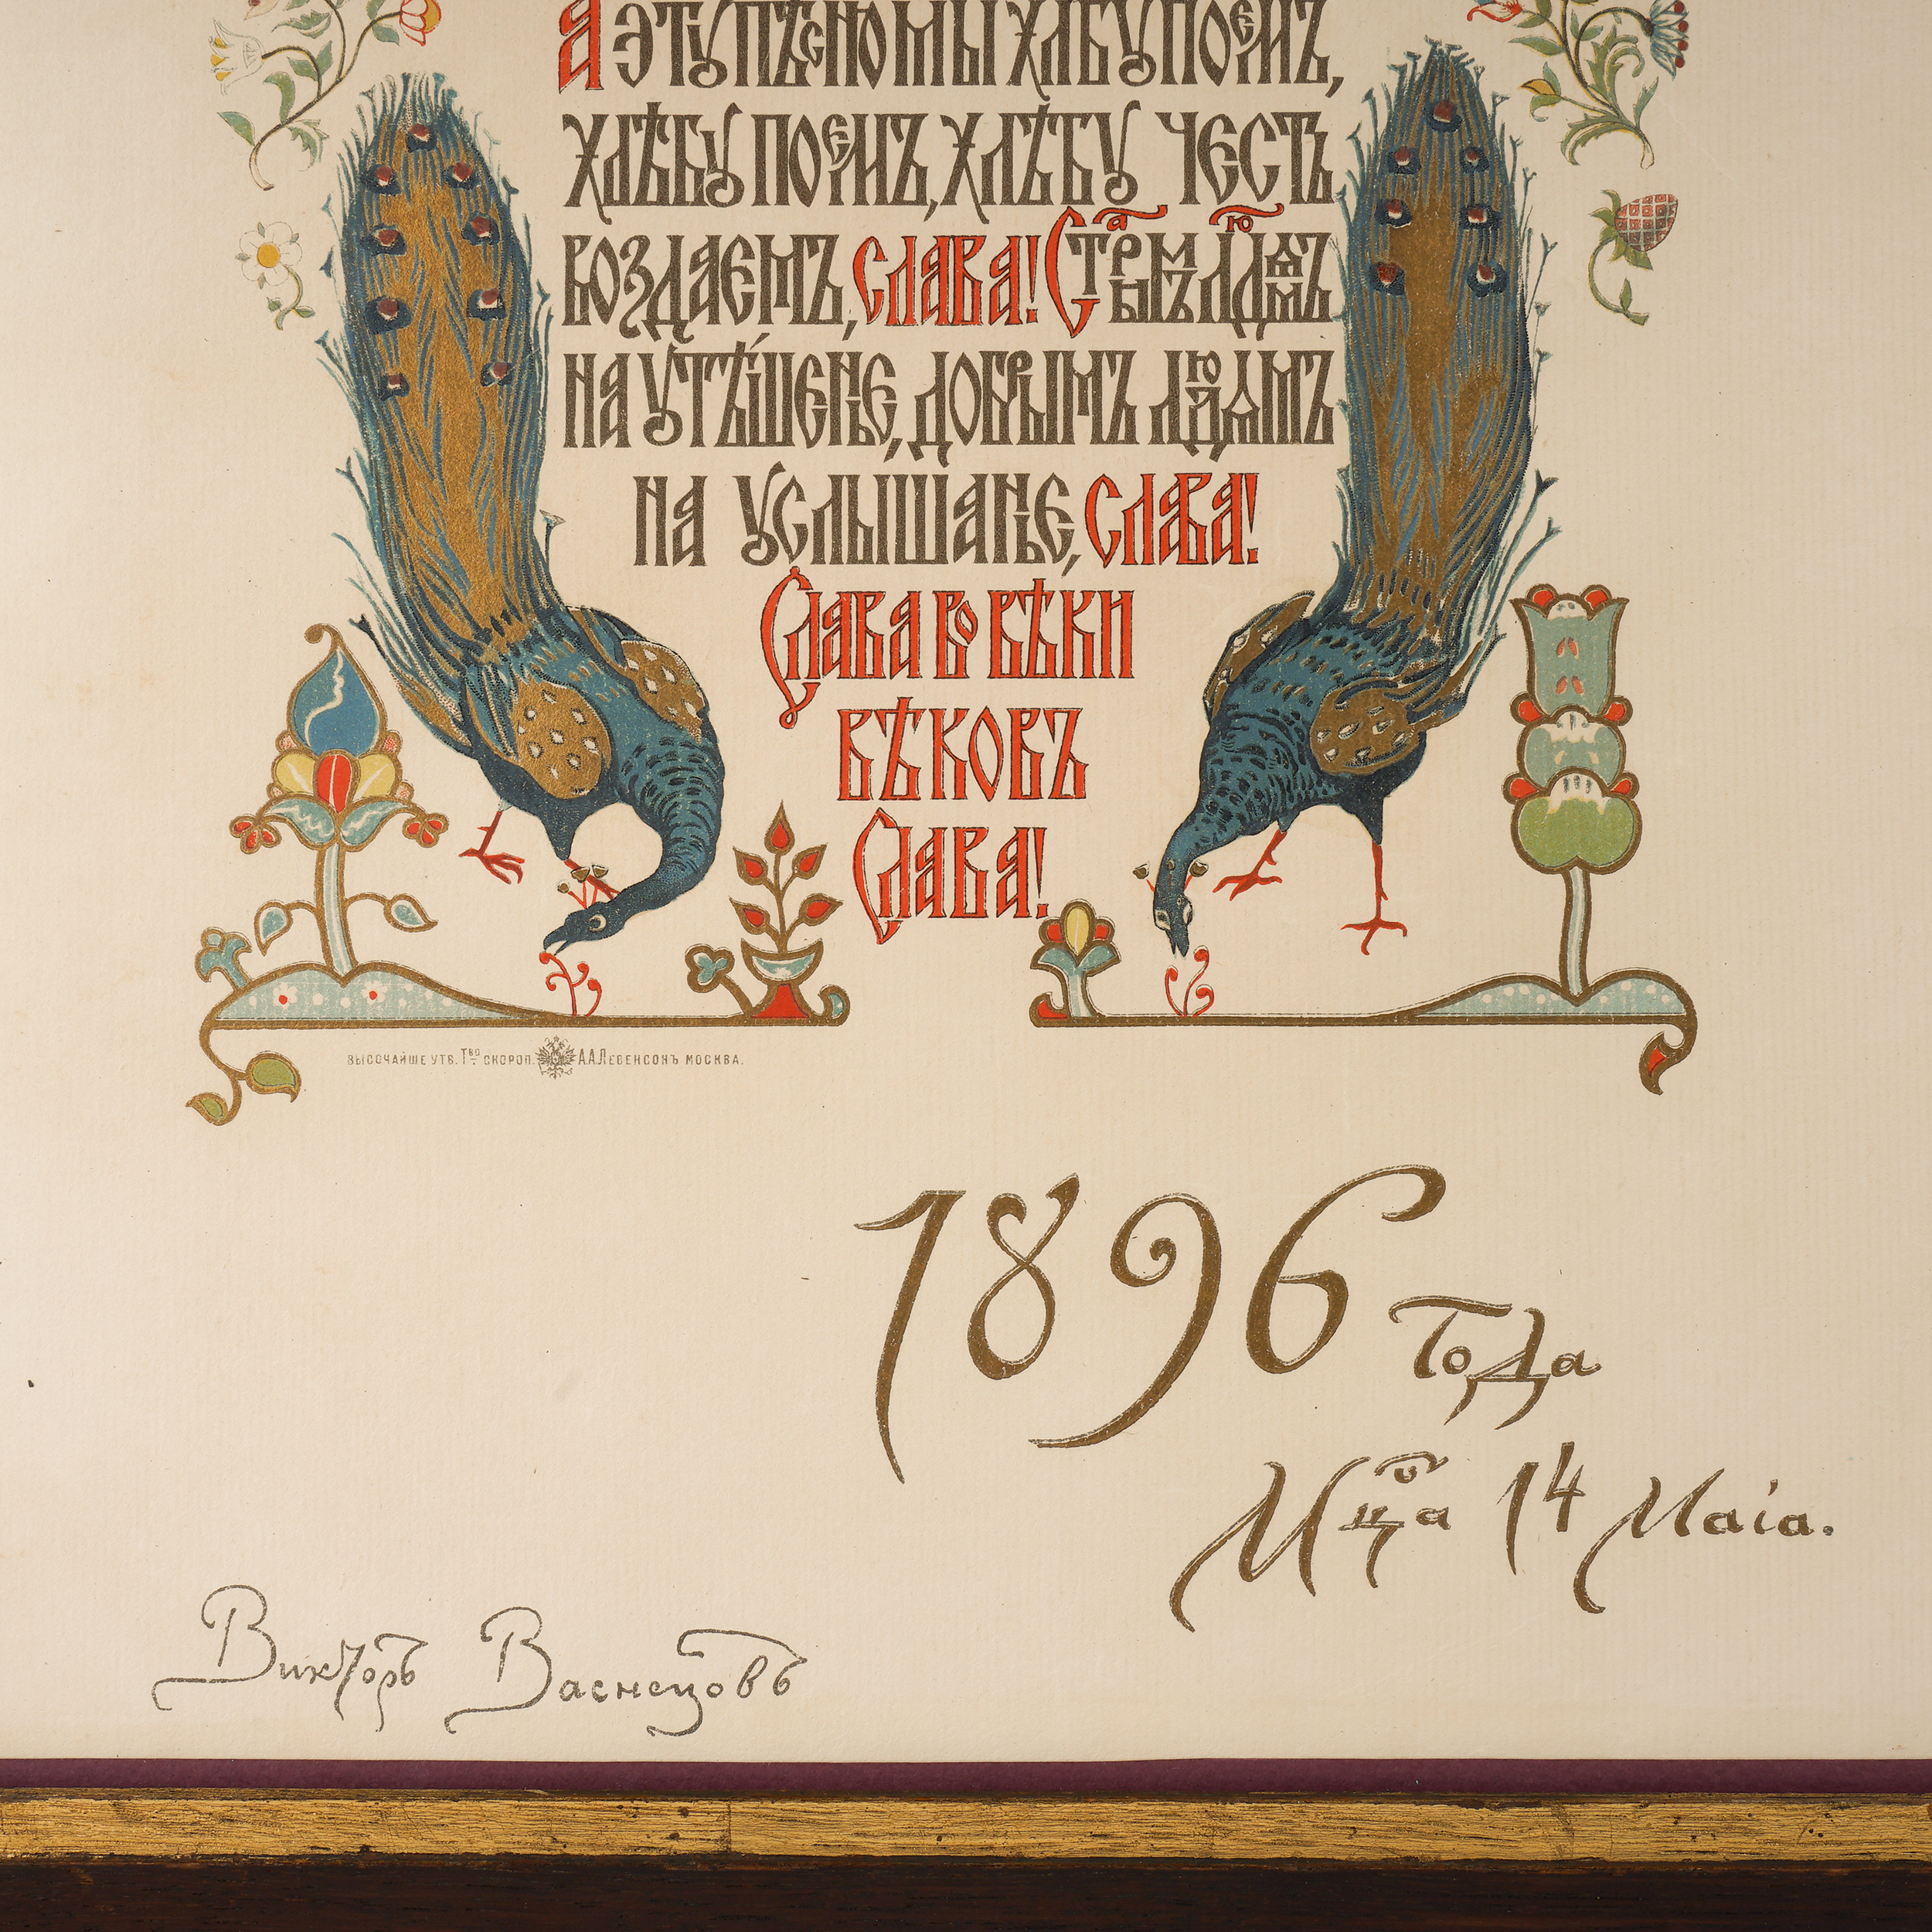 А ЭТУ ПѢСНЮ МЫ ХЛБУ ПОЕМЪ,
ХЛѢБУ ПОЕМЪ, ХЛѢБУ ЧЕСТЬ
ВОЗДАЕМЪ, СЛАВА! СТАРЫМЪ ЛЮДЯМЪ
НА УТѢШЕНЬЕ, ДОБРЫМЪ ЛЮДЯМЪ
НА УСЛЫШАНЬЕ, СЛАВА!
СЛАВА ВО ВѢКИ
ВѢКОВЪ
СЛАВА!
ВЫСОЧАЙШЕ УТВ. Т-ВО СКОРОП. А.А.ЛЕВЕНСОНЪ МОСКВА.
1896 Года
Мца 14 Маія.
Викторъ Васнецовъ